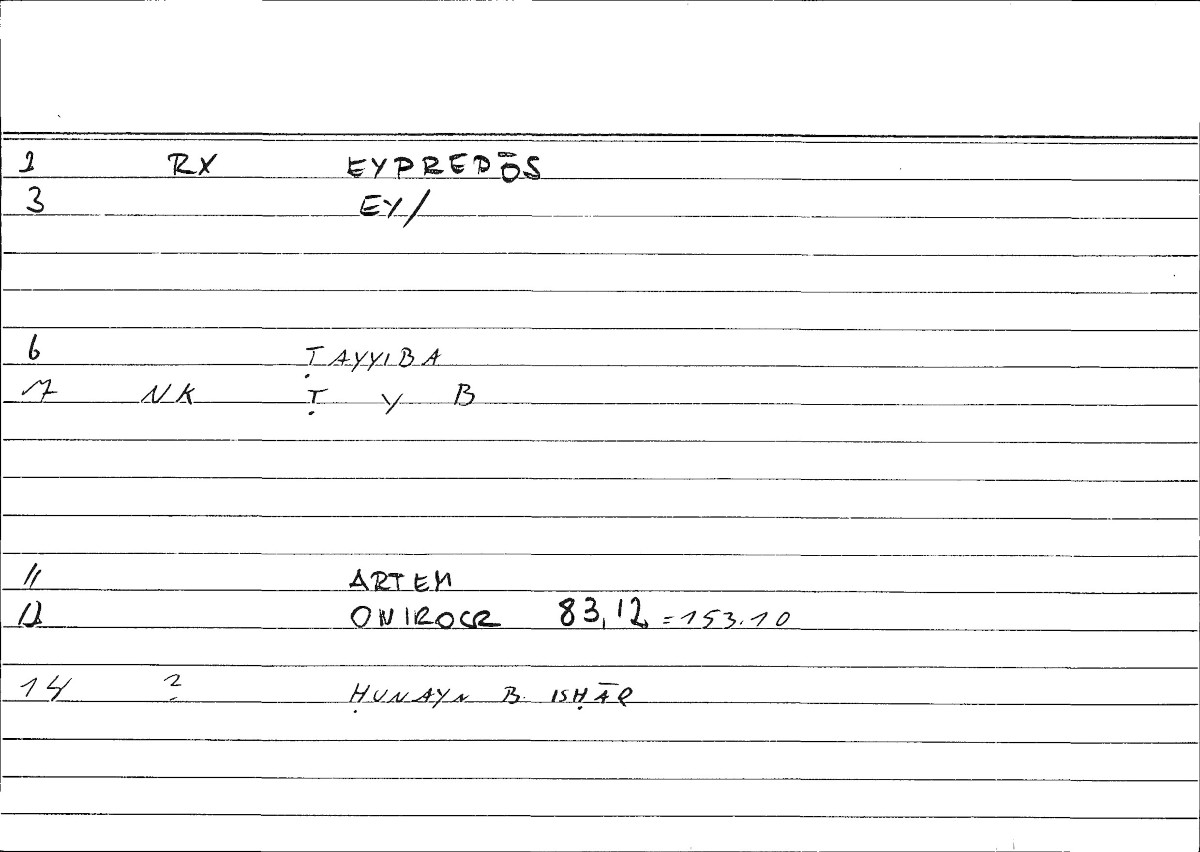 1 RX EYPREPŌS
3 EY/
6 ṬAYYIBA
7 NK Ṭ Y B
11 ARTEM
12 ONIROCR 83,12 = 153.10
14 ? ḤUNAYN B. ISḤĀQ